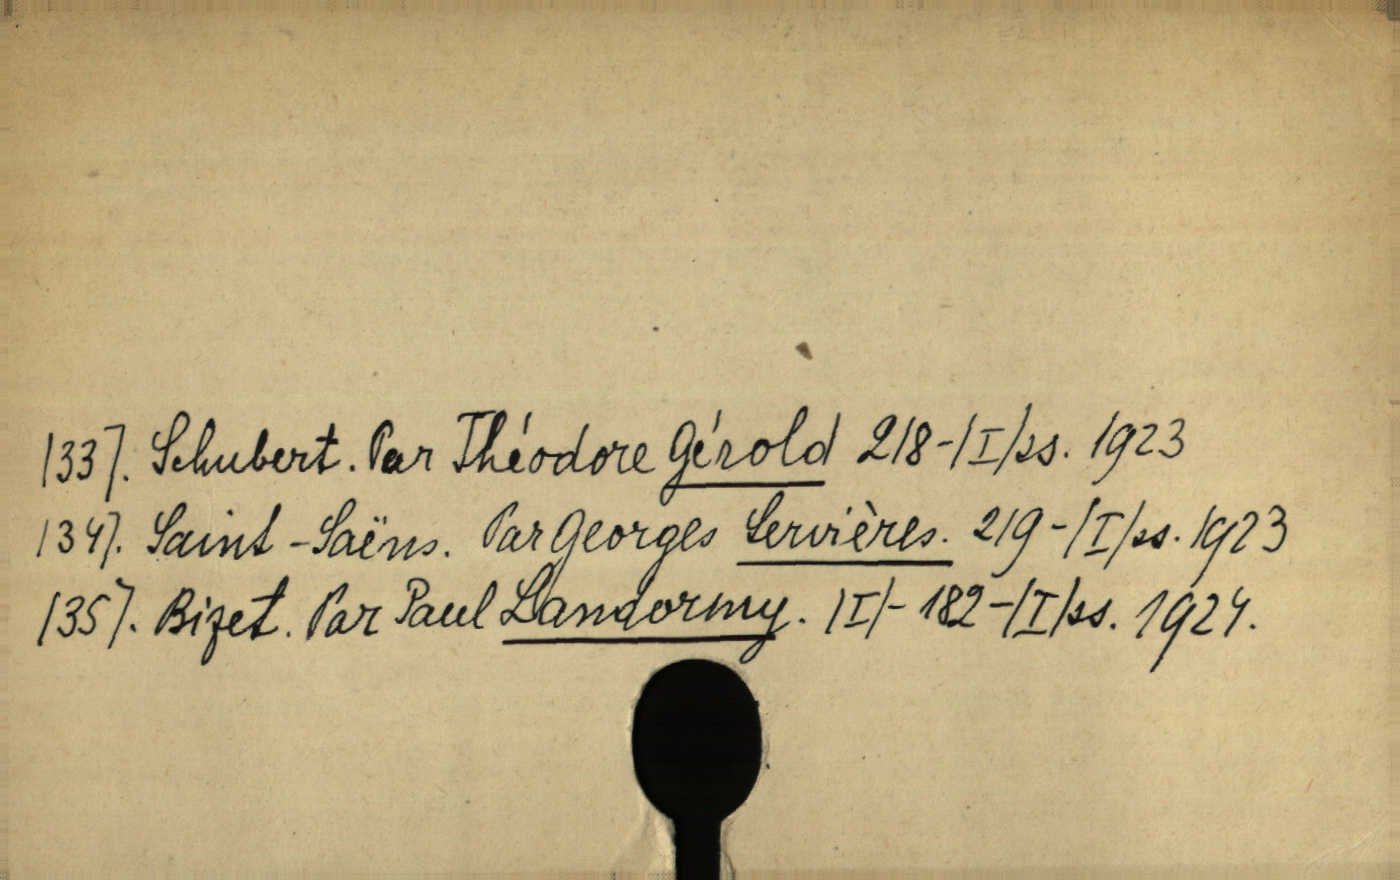 /33/. Schubert. Par Théodore Gérold 218-/I/ss. 1923
/34/. Saint-Saëns. Par Georges Servières. 219-/I/ss. 1923
/35/. Bizet. Par Paul Landormy. /I/-182-/I/ss. 1924.